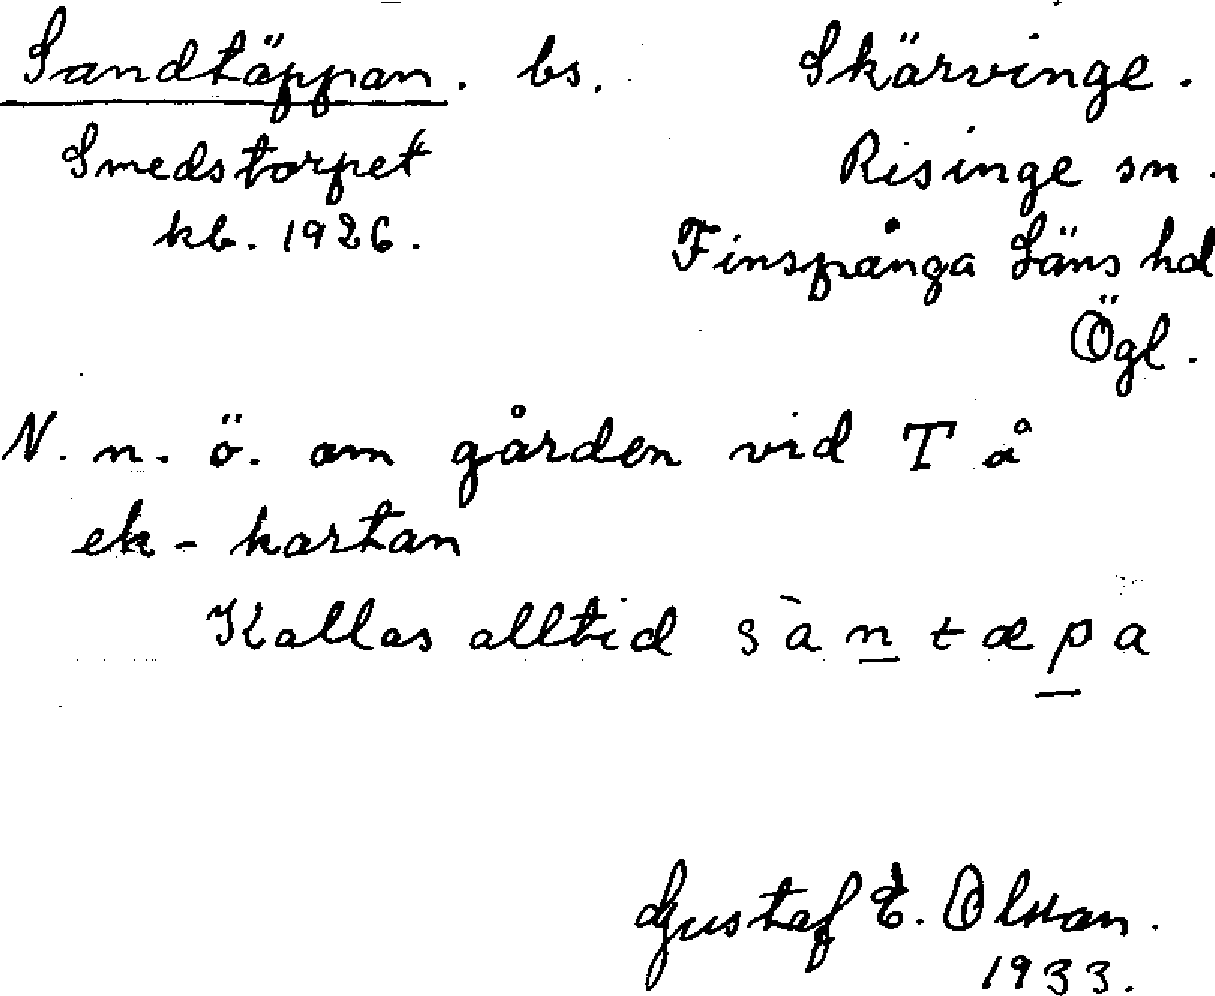 Sandtäppan. bs. Skärvinge.
Smedstorpet Risinge sn.
kb. 1926. Finspånga Läns hd
Ögl.
N. n. ö. om gården vid T å
ek-kartan
Kallas alltid sàn̲tæp̲a
Gustaf E. Olsson.
1933.